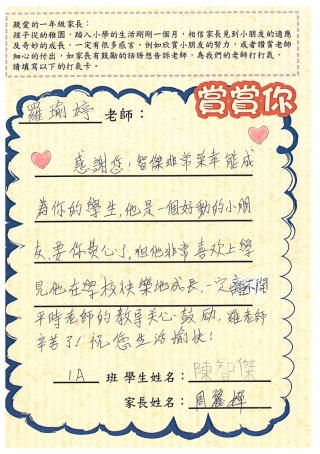 親愛的一年級家長：
孩子從幼稚園，踏入小學的生活剛剛一個月，相信家長見到小朋友的適應
及奇妙的成長，一定有很多感言，例如欣賞小朋友的努力，或者讚賞老師
細心的付出，如家長有鼓勵的話語想告訴老師，為我們的老師打打氣，
請填寫以下的打氣卡。
賞賞你
羅瑜婷 老師：
感謝您！智傑非常榮幸能成
為你的學生，他是一個好動的小朋
友，要你費心了，但他非常喜歡上學
見他在學校快樂地成長，一定離不開
平時老師的教導关心鼓励，羅老師
辛苦了！祝您生活愉快！
1A 班 學生姓名：陳智傑
家長姓名：周麗嬋